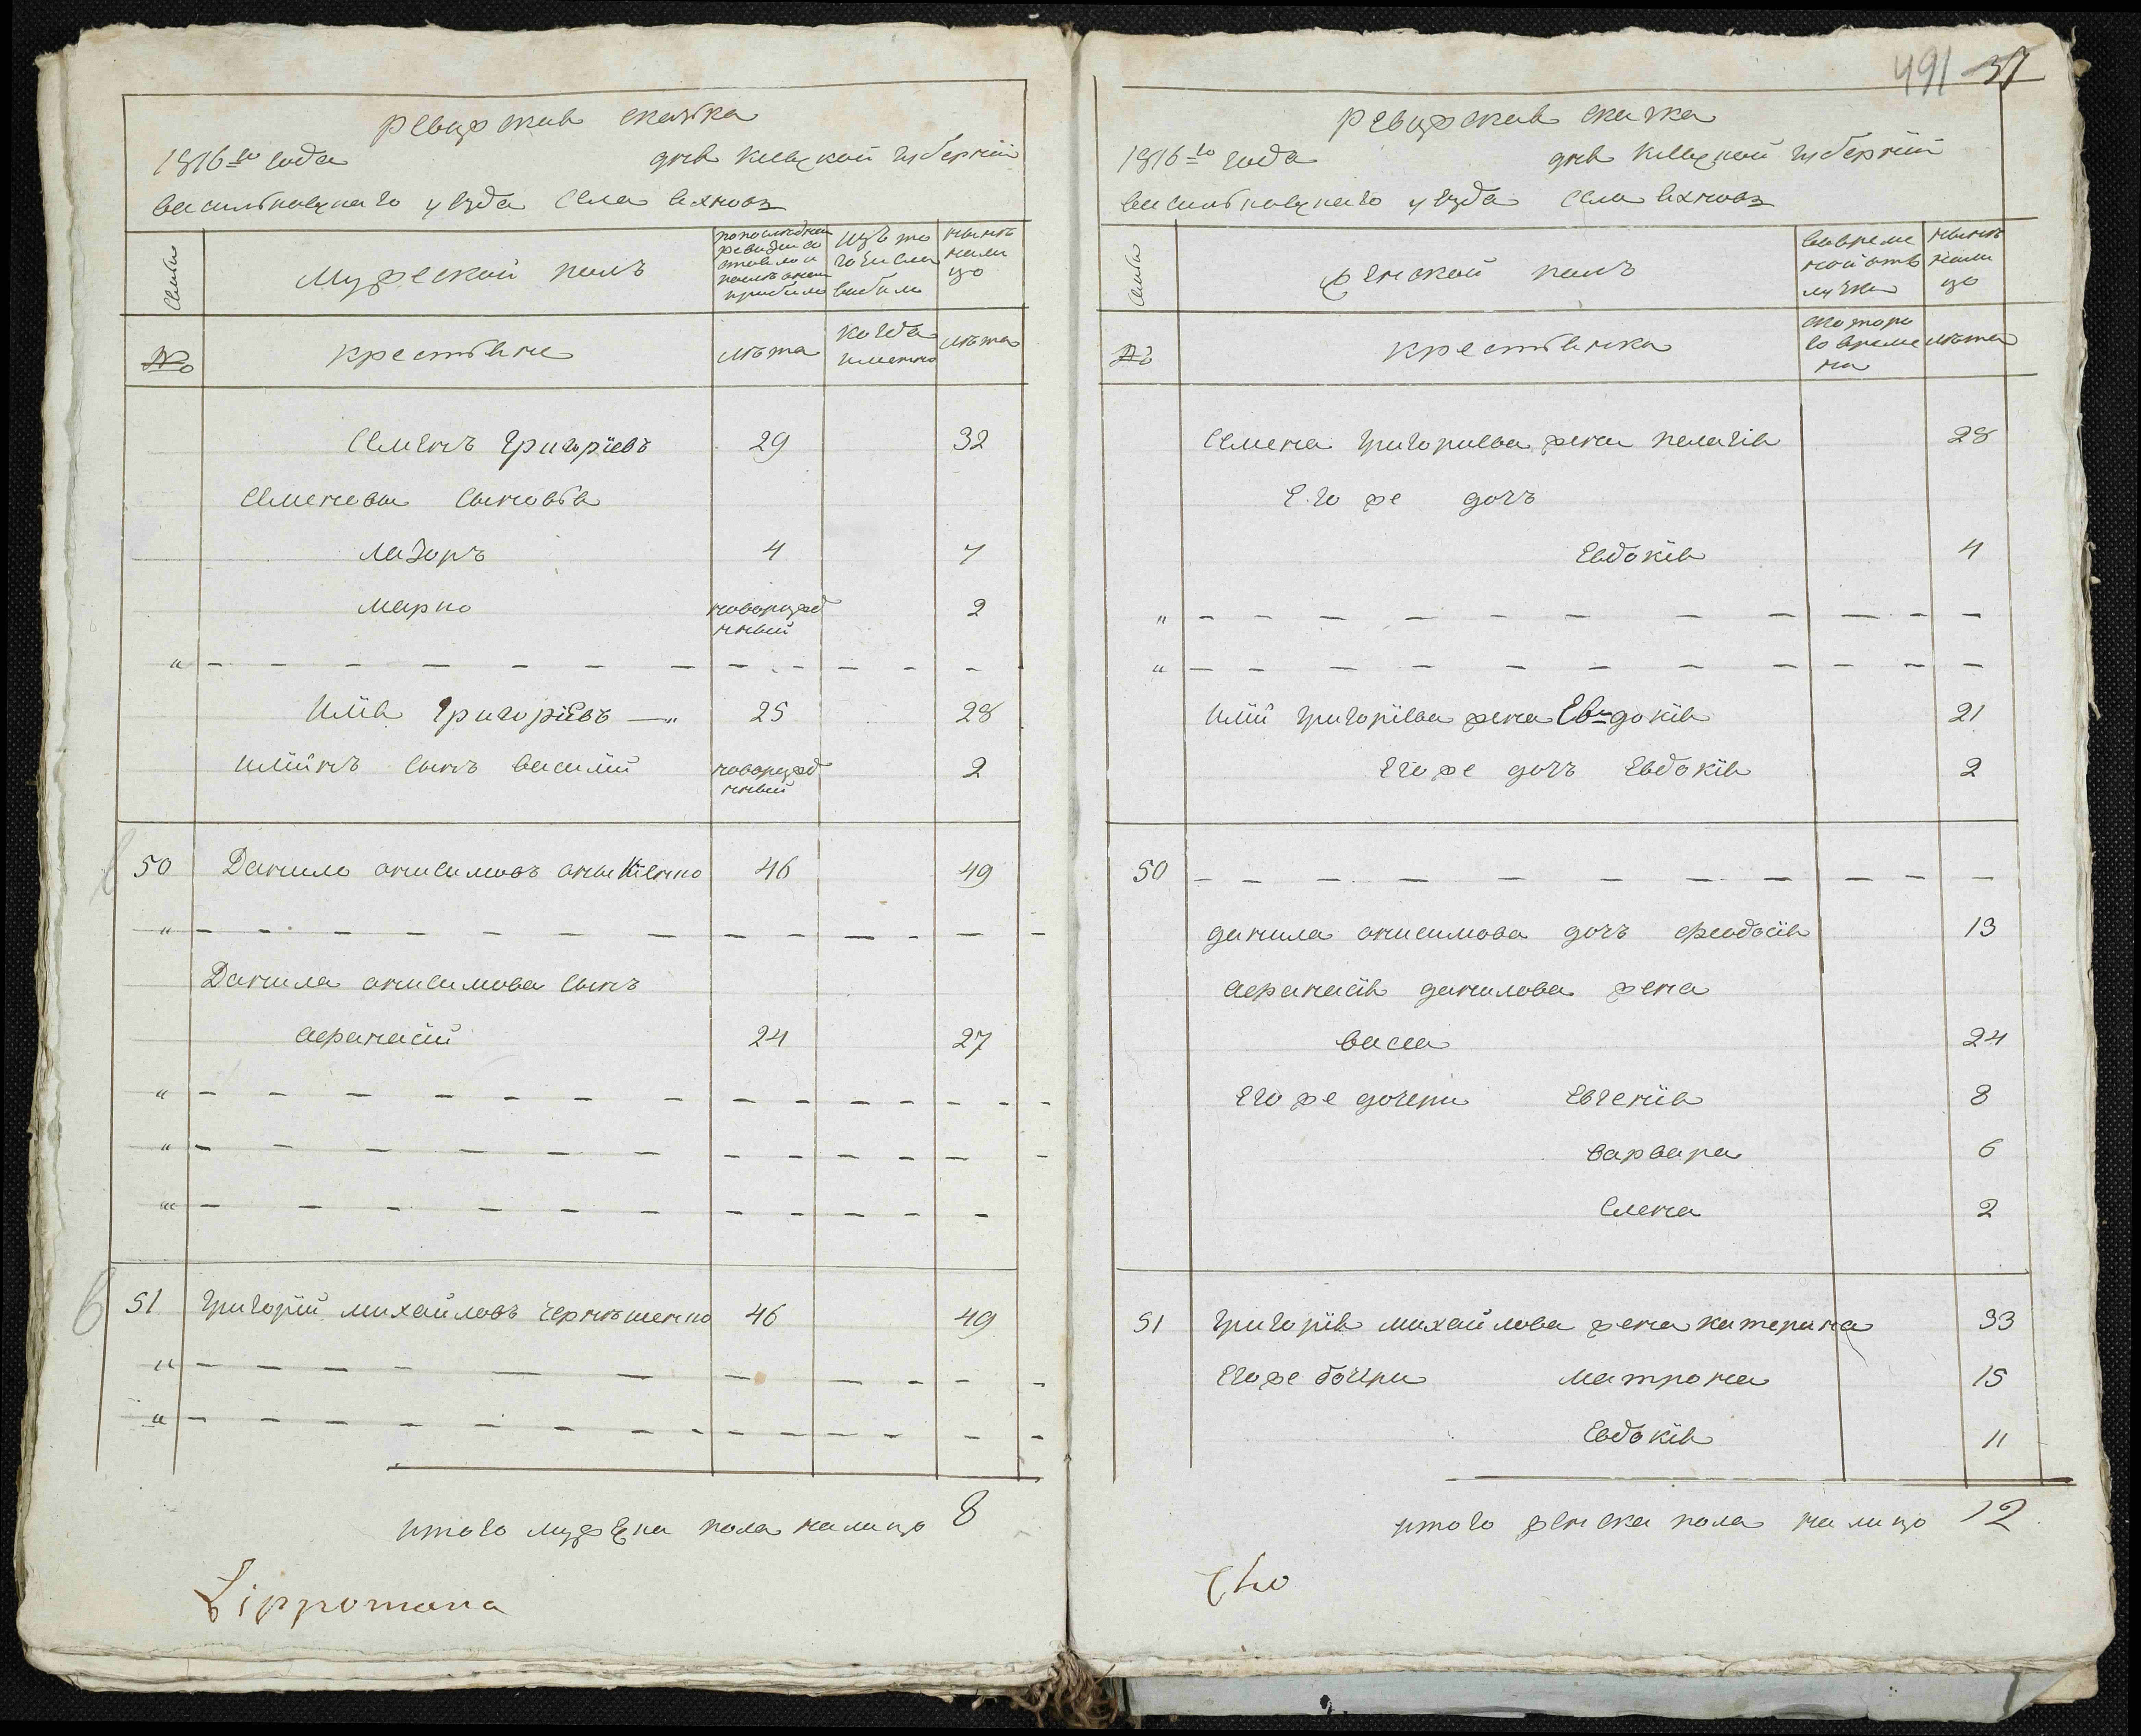 ревизская сказка
1816го года дня киевской губернии
васильковскаго уезда села вахновъ
Семьи
Мужеской полъ
по последней ревизии состояло и после оной прибыло
Изъ того числа выбыло
ныне на лицо
№
крестьяне
лѣта
когда именно
лѣта
Семенъ Григорiевъ 29 32
Семеновы сыновья
лазоръ 4 7
марко новорожденный 2
" — — — — — — — — —
Илiя Григорiевъ —" 25 28
илiинъ сынъ василiй новорожденный 2
50 Данило онисимовъ 46 49
" — — — — — — — — —
Данила онисимова сынъ
афанасiй 24 27
" — — — — — — — — —
" — — — — — — — — —
" — — — — — — — — —
51 григорiй михайловъ чернышенко 46 49
" — — — — — — — — —
" — — — — — — — — —
итого мужеска пола налицо 8
Lippomana
491 37
ревизская сказка
1816го года дня киевской губернiи
васильковскаго уезда села вахновъ
Семьи
женской полъ
во временной отлучке
ныне на лицо
№
крестьянка
с которого времени
лѣта
Семена григориева жена пелагiя 28
Его же дочъ
Евдокiя 4
" — — — — — — — — —
" — — — — — — — — —
илiи григорiева жена Евдокiя 21
Его же дочъ Евдокiя 2
50 — — — — — — — — —
данила онисимова дочъ феодосiя 13
афанасiя данилова жена
васса 24
Его же дочери Евгенiя 8
варвара 6
Елена 2
51 григорiя михайлова жена катерина 33
Его же дочери матрона 15
Евдокiя 11
итого женска пола на лицо 12